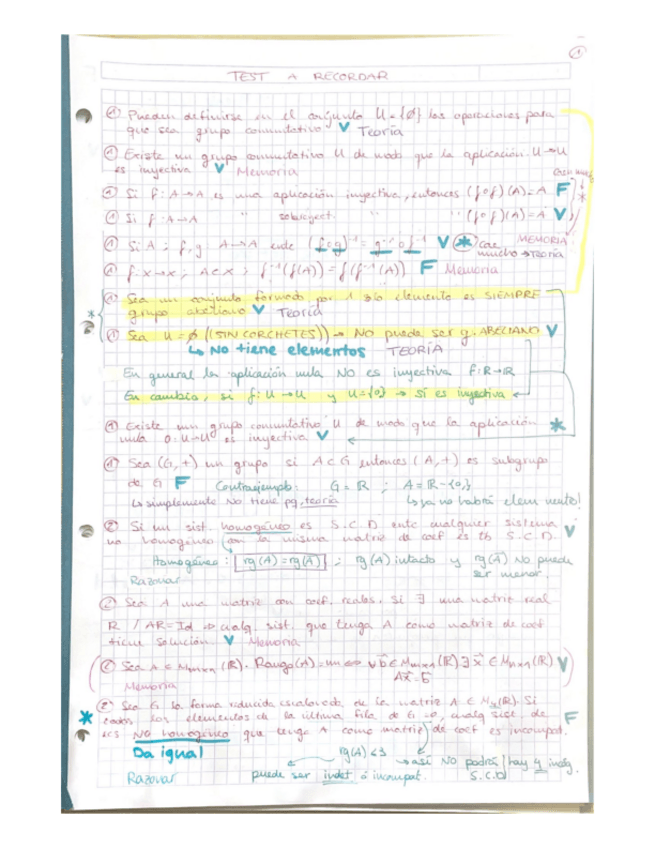 ①
TEST A RECORDAR
① Pueden definirse en el conjunto U = {∅} las operaciones para
que sea grupo conmutativo V Teoría
① Existe un grupo conmutativo U de modo que la aplicación U→U
es inyectiva V Memoria
① Si f: A→A es una aplicación inyectiva, entonces (f∘f)(A)=A F
① Si f: A→A " sobreyect. " " (f∘f)(A)=A V
① Si A; f,g A→A (f∘g)⁻¹ = g⁻¹∘f⁻¹ V * Cae mucho → Teoría
MEMORIA
① f: X→X; A⊂X; f⁻¹(f(A)) = f(f⁻¹(A)) F Memoria
① Sea un conjunto formado por 1 sólo elemento es SIEMPRE
grupo abeliano V Teoría
* ① Sea U = ∅ ((SIN CORCHETES)) → NO puede ser g. ABELIANO V
↳ No tiene elementos TEORÍA
En general la aplicación nula NO es inyectiva f: R→R
En cambio, si f: U→U y U={0} → Sí es inyectiva
① Existe un grupo conmutativo U de modo que la aplicación *
nula 0: U→U es inyectiva V
① Sea (G,+) un grupo si A⊂G entonces (A,+) es subgrupo
de G F Contraejemplo: G = R ; A = R-{0}
↳ simplemente No tiene pq, teoría ↳ ya no habrá elem neutro!
② Si un sist. homogéneo es S.C.D. ento cualquier sistema
no homogéneo con la misma matriz de coef es tb S.C.D. V
Homogéneo: rg(A) = rg(Ā) ; rg(A) intacto y rg(Ā) No puede
ser menor.
Razonar
② Sea A una matriz con coef. reales. Si ∃ una matriz real
R / AR=Id ⇒ cualq. sist. que tenga A como matriz de coef
tiene solución V Memoria
② Sea A ∈ Mmxn (R). Rango(A)=m ⇔ ∀b ∈ Mmx1 (R) ∃ x ∈ Mnx1 (R) V
Ax = b
Memoria
② Sea G la forma reducida escalonada de la matriz A ∈ M₃(R). Si
* todos los elementos de la última fila de G =0, cualq sist. de F
ecs No homogéneo que tenga A como matriz de coef es incompat.
Da igual
rg(A) ≤3 → así NO podrá / hay 4 incóg.
Razonar puede ser indet. ó incompat. S.C.D